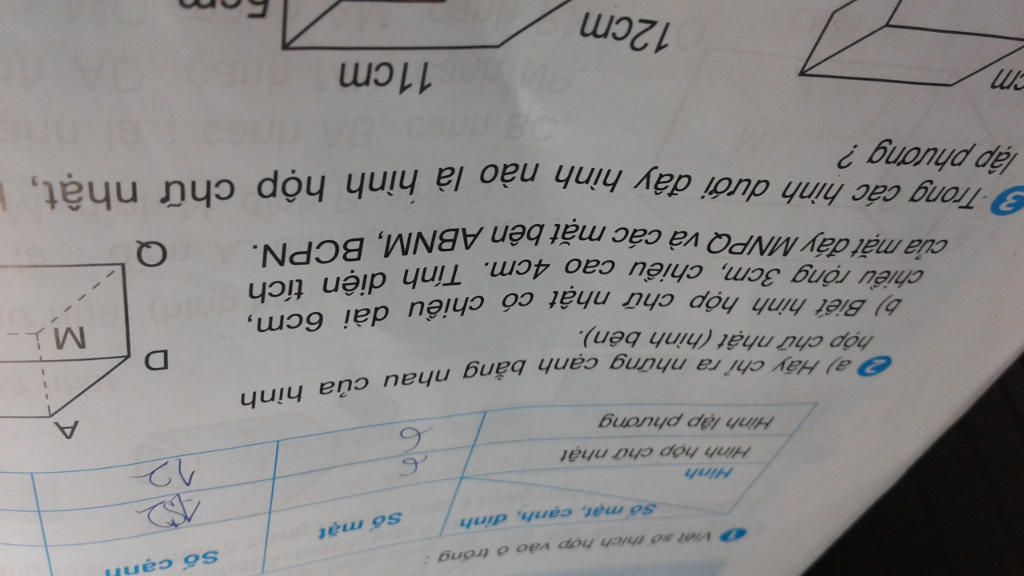 1 Viết số thích hợp vào ô trống :
Số mặt, cạnh, đỉnh
Hình
Số mặt
Số cạnh
Hình hộp chữ nhật
6
12
Hình lập phương
6
12
2 a) Hãy chỉ ra những cạnh bằng nhau của hình
hộp chữ nhật (hình bên).
b) Biết hình hộp chữ nhật có chiều dài 6cm,
chiều rộng 3cm, chiều cao 4cm. Tính diện tích
của mặt đáy MNPQ và các mặt bên ABNM, BCPN.
A
D
M
Q
3 Trong các hình dưới đây hình nào là hình hộp chữ nhật,
lập phương ?
cm
12cm
11cm
5cm